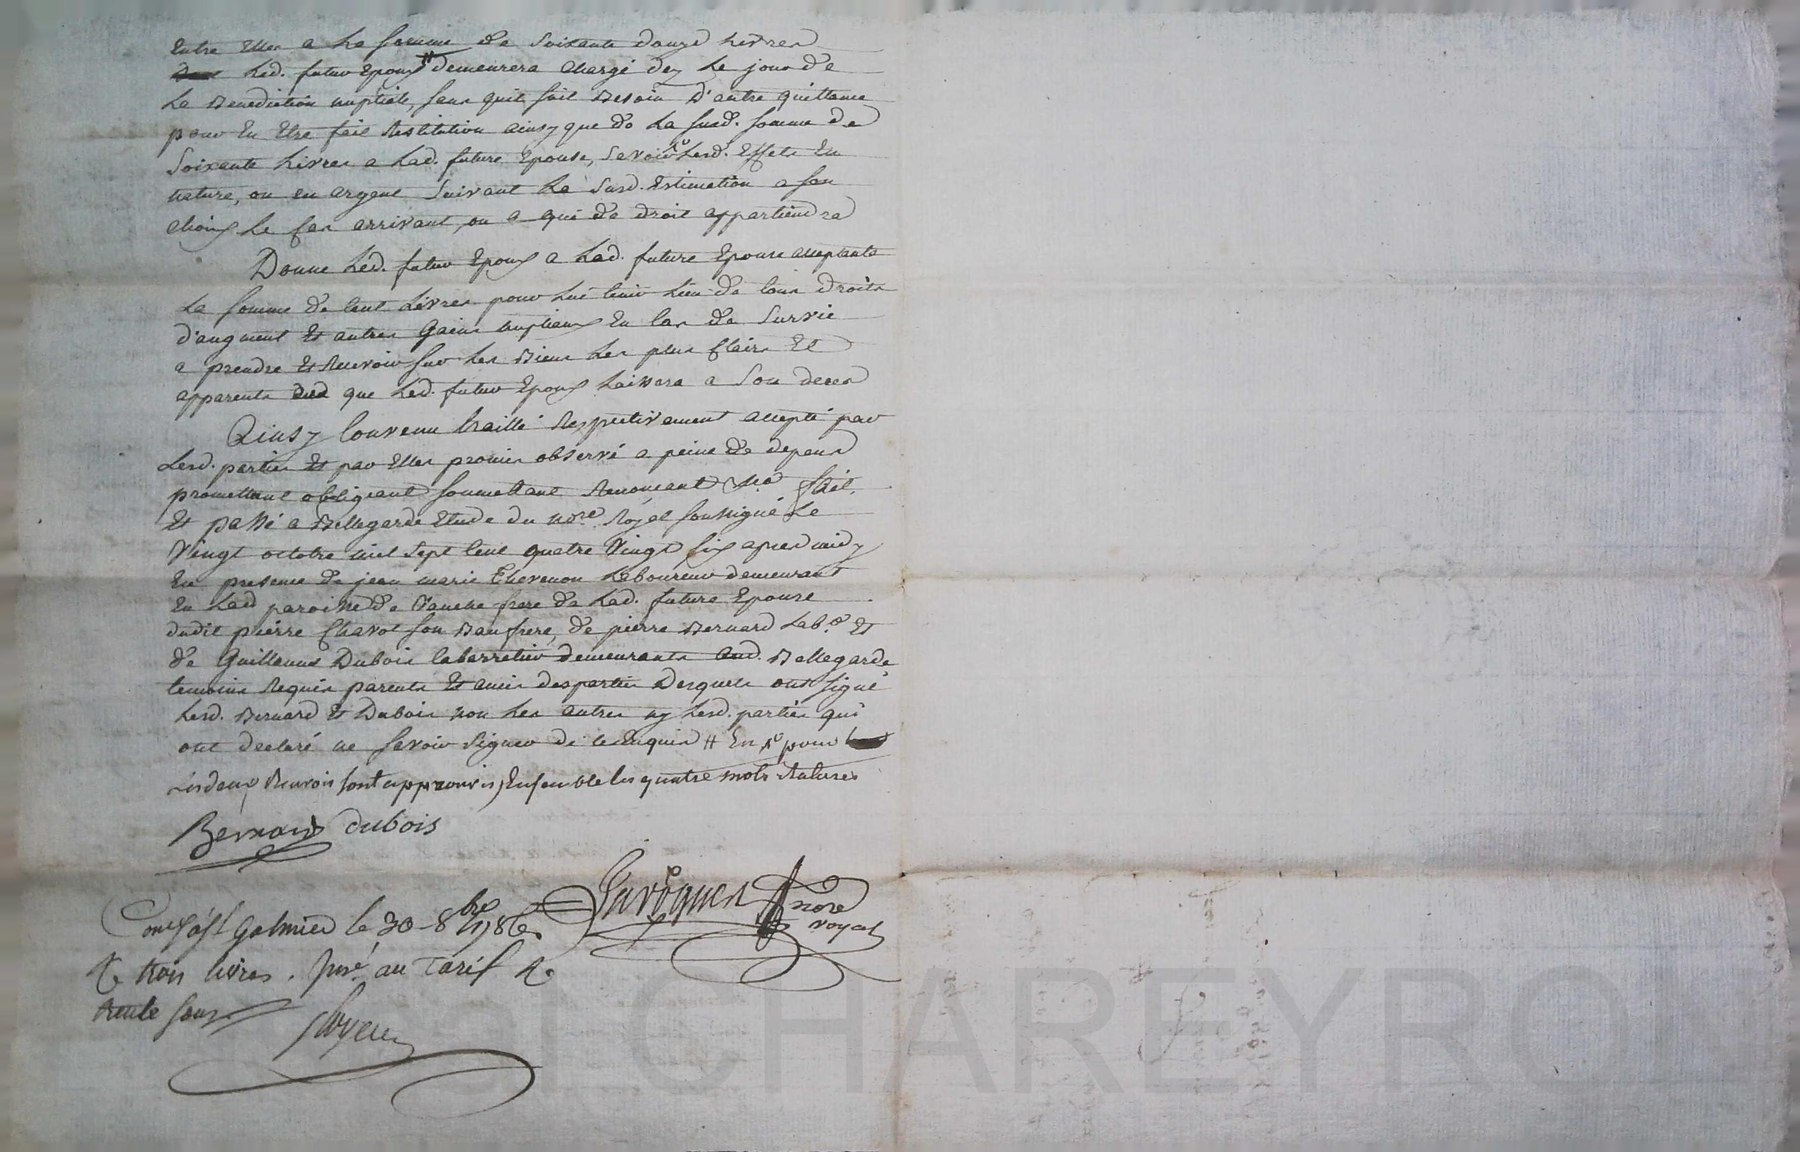 Entre Elles a La somme de Soixante douze Livres
Led. futur Epoux # demeurera Chargé dez Le jour de
La Benediction nuptiale, sans quil soit Besoin D'autre quittance
pour En Etre fait Restitution ainsy que de La susd. somme de
Soixante Livres a Lad. future Epouse, Savoir Lesd. Effets En
nature, ou en argent Suivant La Susd. Estimation a son
choix Le cas arrivant, ou a qui de droit appartiendra
Donne Led. futur Epoux a Lad. future Epouse acceptante
La somme de Cent Livres pour Lui tenir Lieu de tous droits
d'augment Et autres Gains nuptiaux En Cas de Survie
a prendre Et Recevoir sur Les Biens Les plus Clairs Et
apparents que Led. futur Epoux Laissera a Son deces
Ainsy Convenu traitté Respectivement accepté par
Lesd. parties Et par Elles promis observé a peine de depens
promettant obligeant soumettant Renoncant &ca fait
Et passé a Bellegarde Etude du nore. Royal soussigné Le
Vingt octobre mil Sept Cent quatre Vingt six apres midy
En presence de jean marie Thevenon Laboureur demeurant
En Lad paroisse de frere de Lad. future Epouse
dudit pierre Chavot son Beaufrere, de pierre Bernard Lab.r Et
de Guillaume Dubois Cabarretier demeurants aud. Bellegarde
temoins Requis parents Et amis desparties Desquels ont signé
Lesd. Bernard Et Dubois non Les autres ny Lesd. parties qui
ont declaré ne savoir signer de ce Enquis # En pour
Les deux Renvois sont approuvés, Ensemble les quatre mots Raturés
Bernard dubois
Laroque nore
royal
Con.lé a St Galmier le 30 8bre 1786
R trois livres. au Tarif de
trente sous